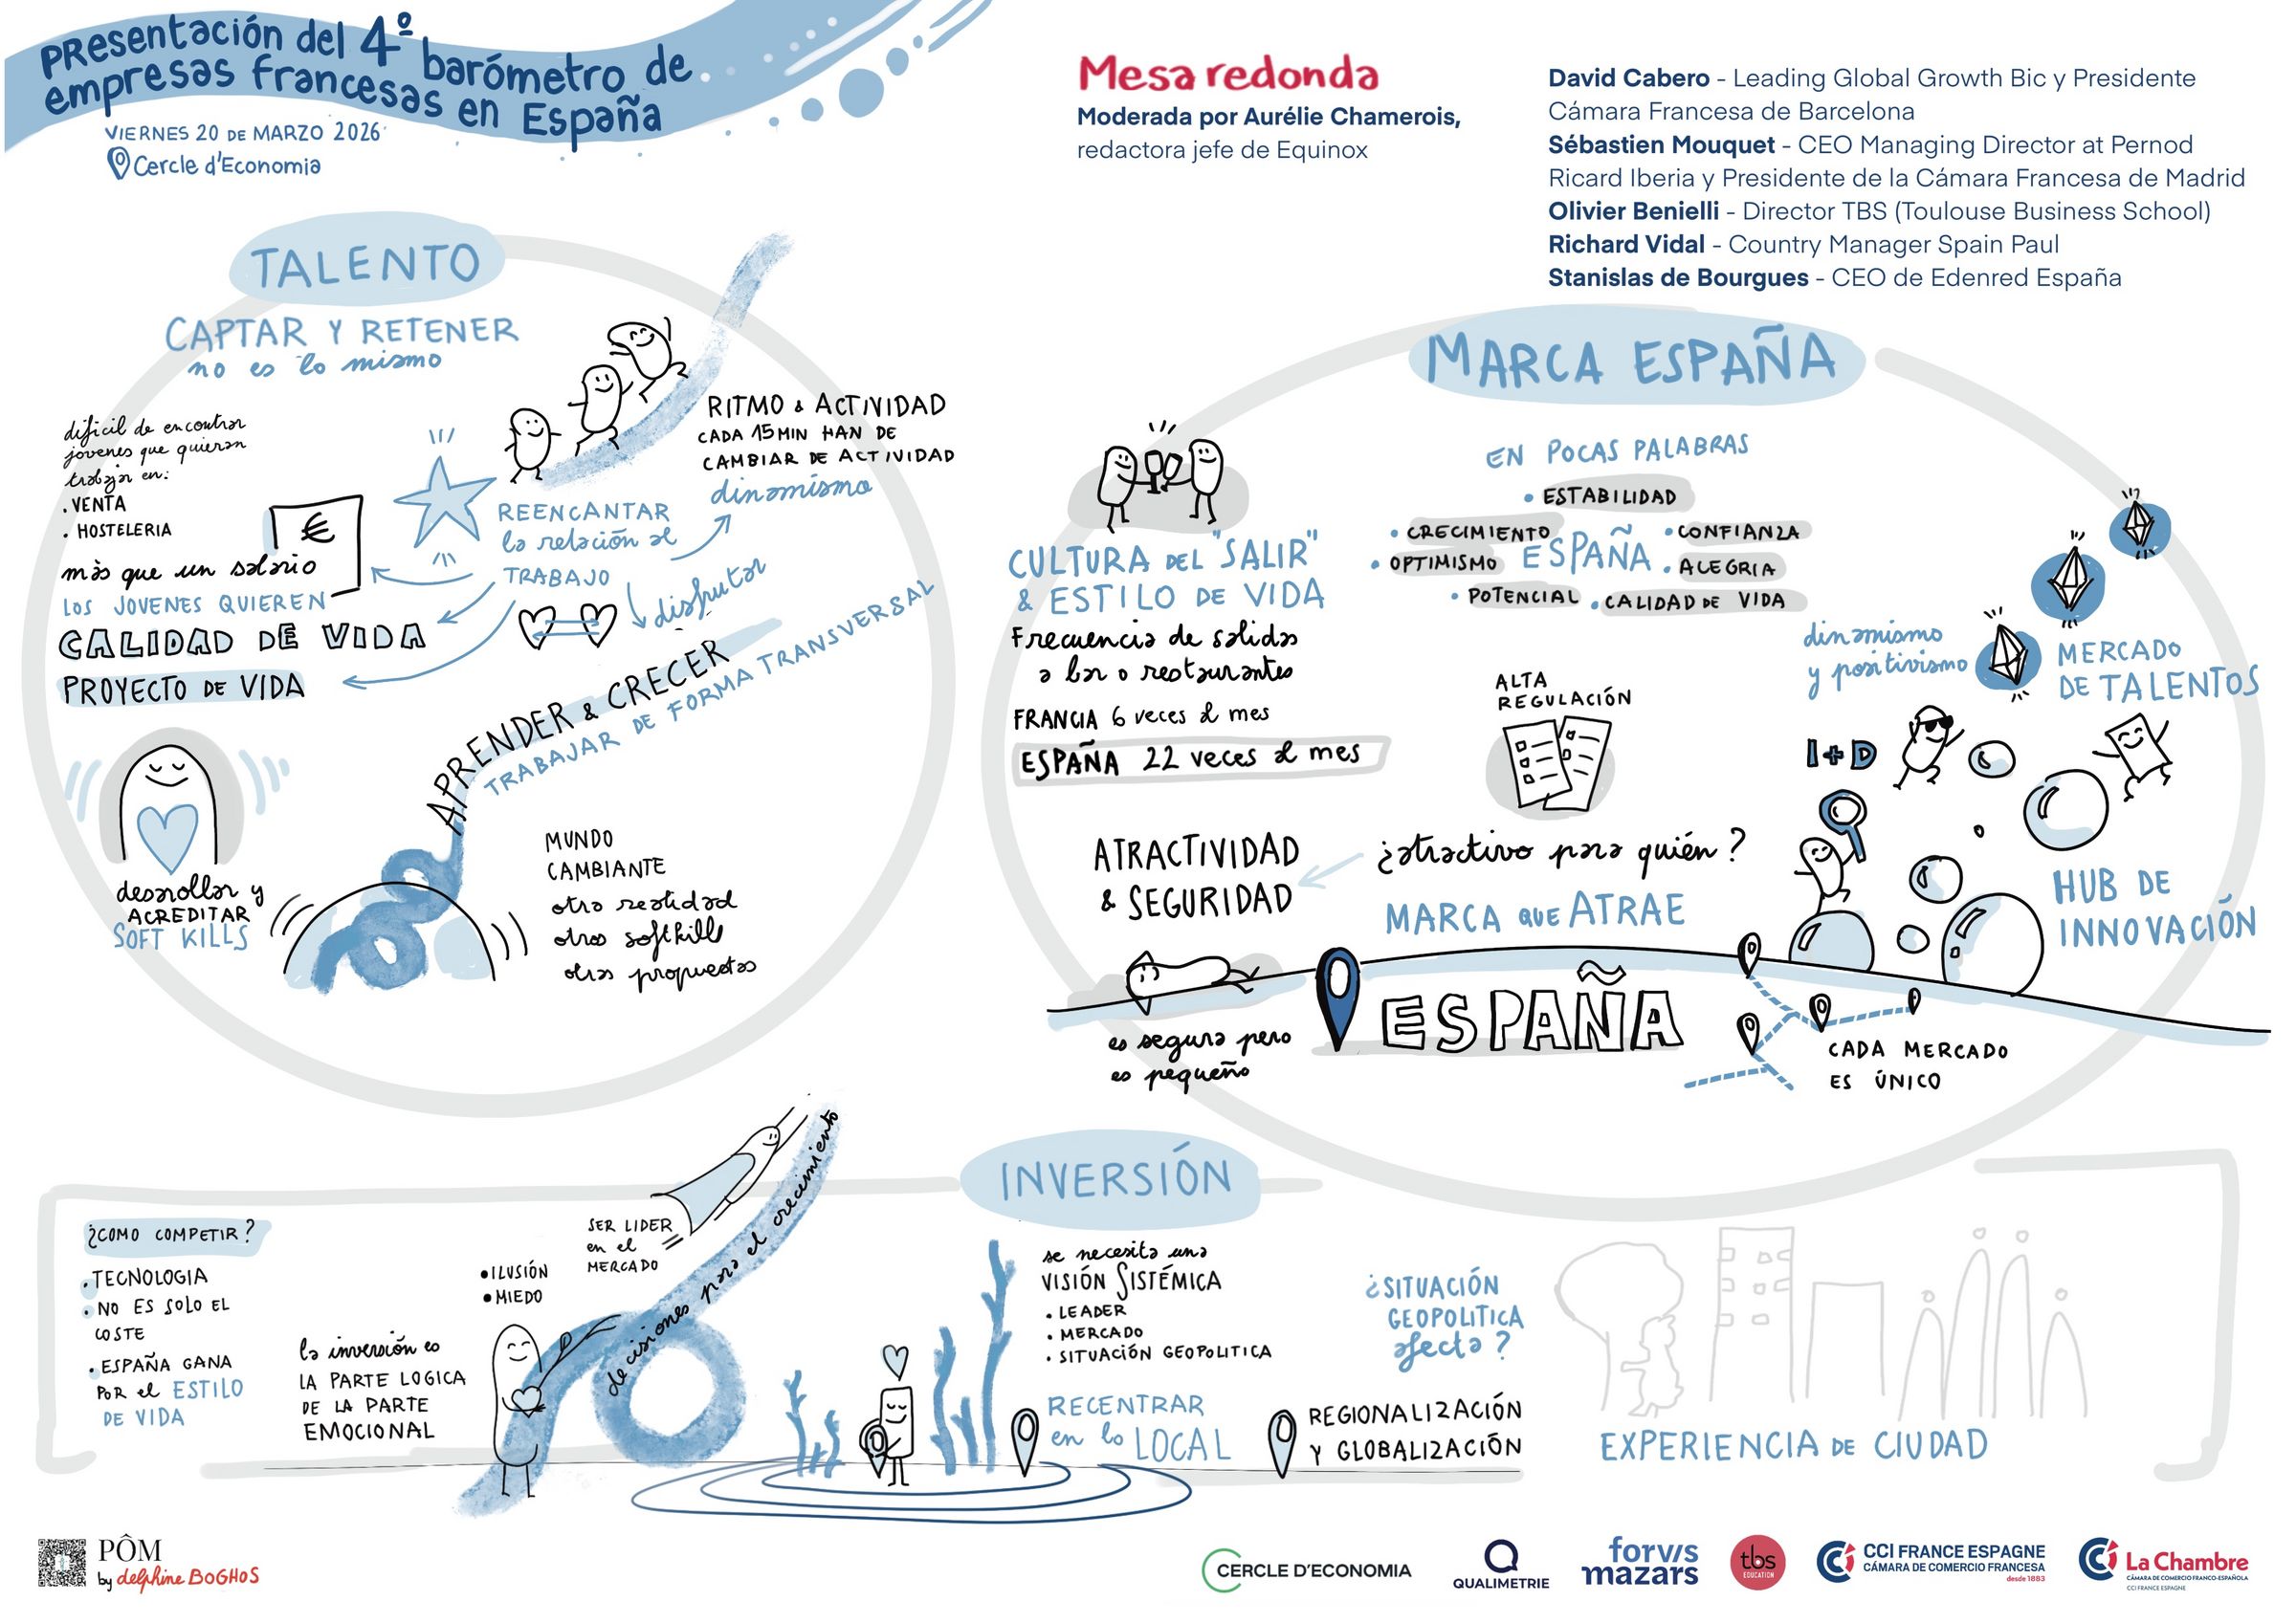 PResentación del 4º barómetro de
empresas francesas en España
VIERNES 20 DE MARZO 2026
Cercle d'Economia
Mesa redonda
Moderada por Aurélie Chamerois,
redactora jefe de Equinox
David Cabero - Leading Global Growth Bic y Presidente
Cámara Francesa de Barcelona
Sébastien Mouquet - CEO Managing Director at Pernod
Ricard Iberia y Presidente de la Cámara Francesa de Madrid
Olivier Benielli - Director TBS (Toulouse Business School)
Richard Vidal - Country Manager Spain Paul
Stanislas de Bourgues - CEO de Edenred España
TALENTO
CAPTAR Y RETENER
no es lo mismo
dificil de encontrar
jovenes que quieran
trabajar en:
. VENTA
. HOSTELERIA
€
más que un salario
LOS JOVENES QUIEREN
CALIDAD DE VIDA
PROYECTO DE VIDA
REENCANTAR
la relación al
TRABAJO
RITMO & ACTIVIDAD
CADA 15 MIN HAN DE
CAMBIAR DE ACTIVIDAD
dinamismo
disfrutar
APRENDER & CRECER
TRABAJAR DE FORMA TRANSVERSAL
desarollar y
ACREDITAR
SOFT KILLS
MUNDO
CAMBIANTE
otra realidad
otros softkills
otras propuestas
MARCA ESPAÑA
EN POCAS PALABRAS
• ESTABILIDAD
• CRECIMIENTO
• CONFIANZA
• OPTIMISMO
ESPAÑA
• ALEGRIA
• POTENCIAL
• CALIDAD DE VIDA
CULTURA DEL "SALIR"
& ESTILO DE VIDA
Frecuencia de salidas
a bar o restaurantes
FRANCIA 6 veces al mes
ESPAÑA 22 veces al mes
ALTA
REGULACIÓN
dinamismo
y positivismo
MERCADO
DE TALENTOS
I+D
HUB DE
INNOVACIÓN
ATRACTIVIDAD
& SEGURIDAD
¿atractivo para quién?
MARCA QUE ATRAE
ESPAÑA
es segura pero
es pequeño
CADA MERCADO
ES ÚNICO
INVERSIÓN
¿COMO COMPETIR?
. TECNOLOGIA
. NO ES SOLO EL
COSTE
. ESPAÑA GANA
POR el ESTILO
DE VIDA
la inversión es
LA PARTE LOGICA
DE LA PARTE
EMOCIONAL
• ILUSIÓN
• MIEDO
SER LIDER
en el
MERCADO
decisiones para el crecimiento
se necesita una
VISIÓN SISTÉMICA
. LEADER
. MERCADO
. SITUACIÓN GEOPOLITICA
RECENTRAR
en lo LOCAL
¿SITUACIÓN
GEOPOLITICA
afecta?
REGIONALIZACIÓN
Y GLOBALIZACIÓN
EXPERIENCIA DE CIUDAD
PÔM
by delphine BOGHOS
CERCLE D'ECONOMIA
QUALIMETRIE
forvis
mazars
tbs
EDUCATION
CCI FRANCE ESPAGNE
CÁMARA DE COMERCIO FRANCESA
desde 1883
La Chambre
CÁMARA DE COMERCIO FRANCO-ESPAÑOLA
CCI FRANCE ESPAGNE